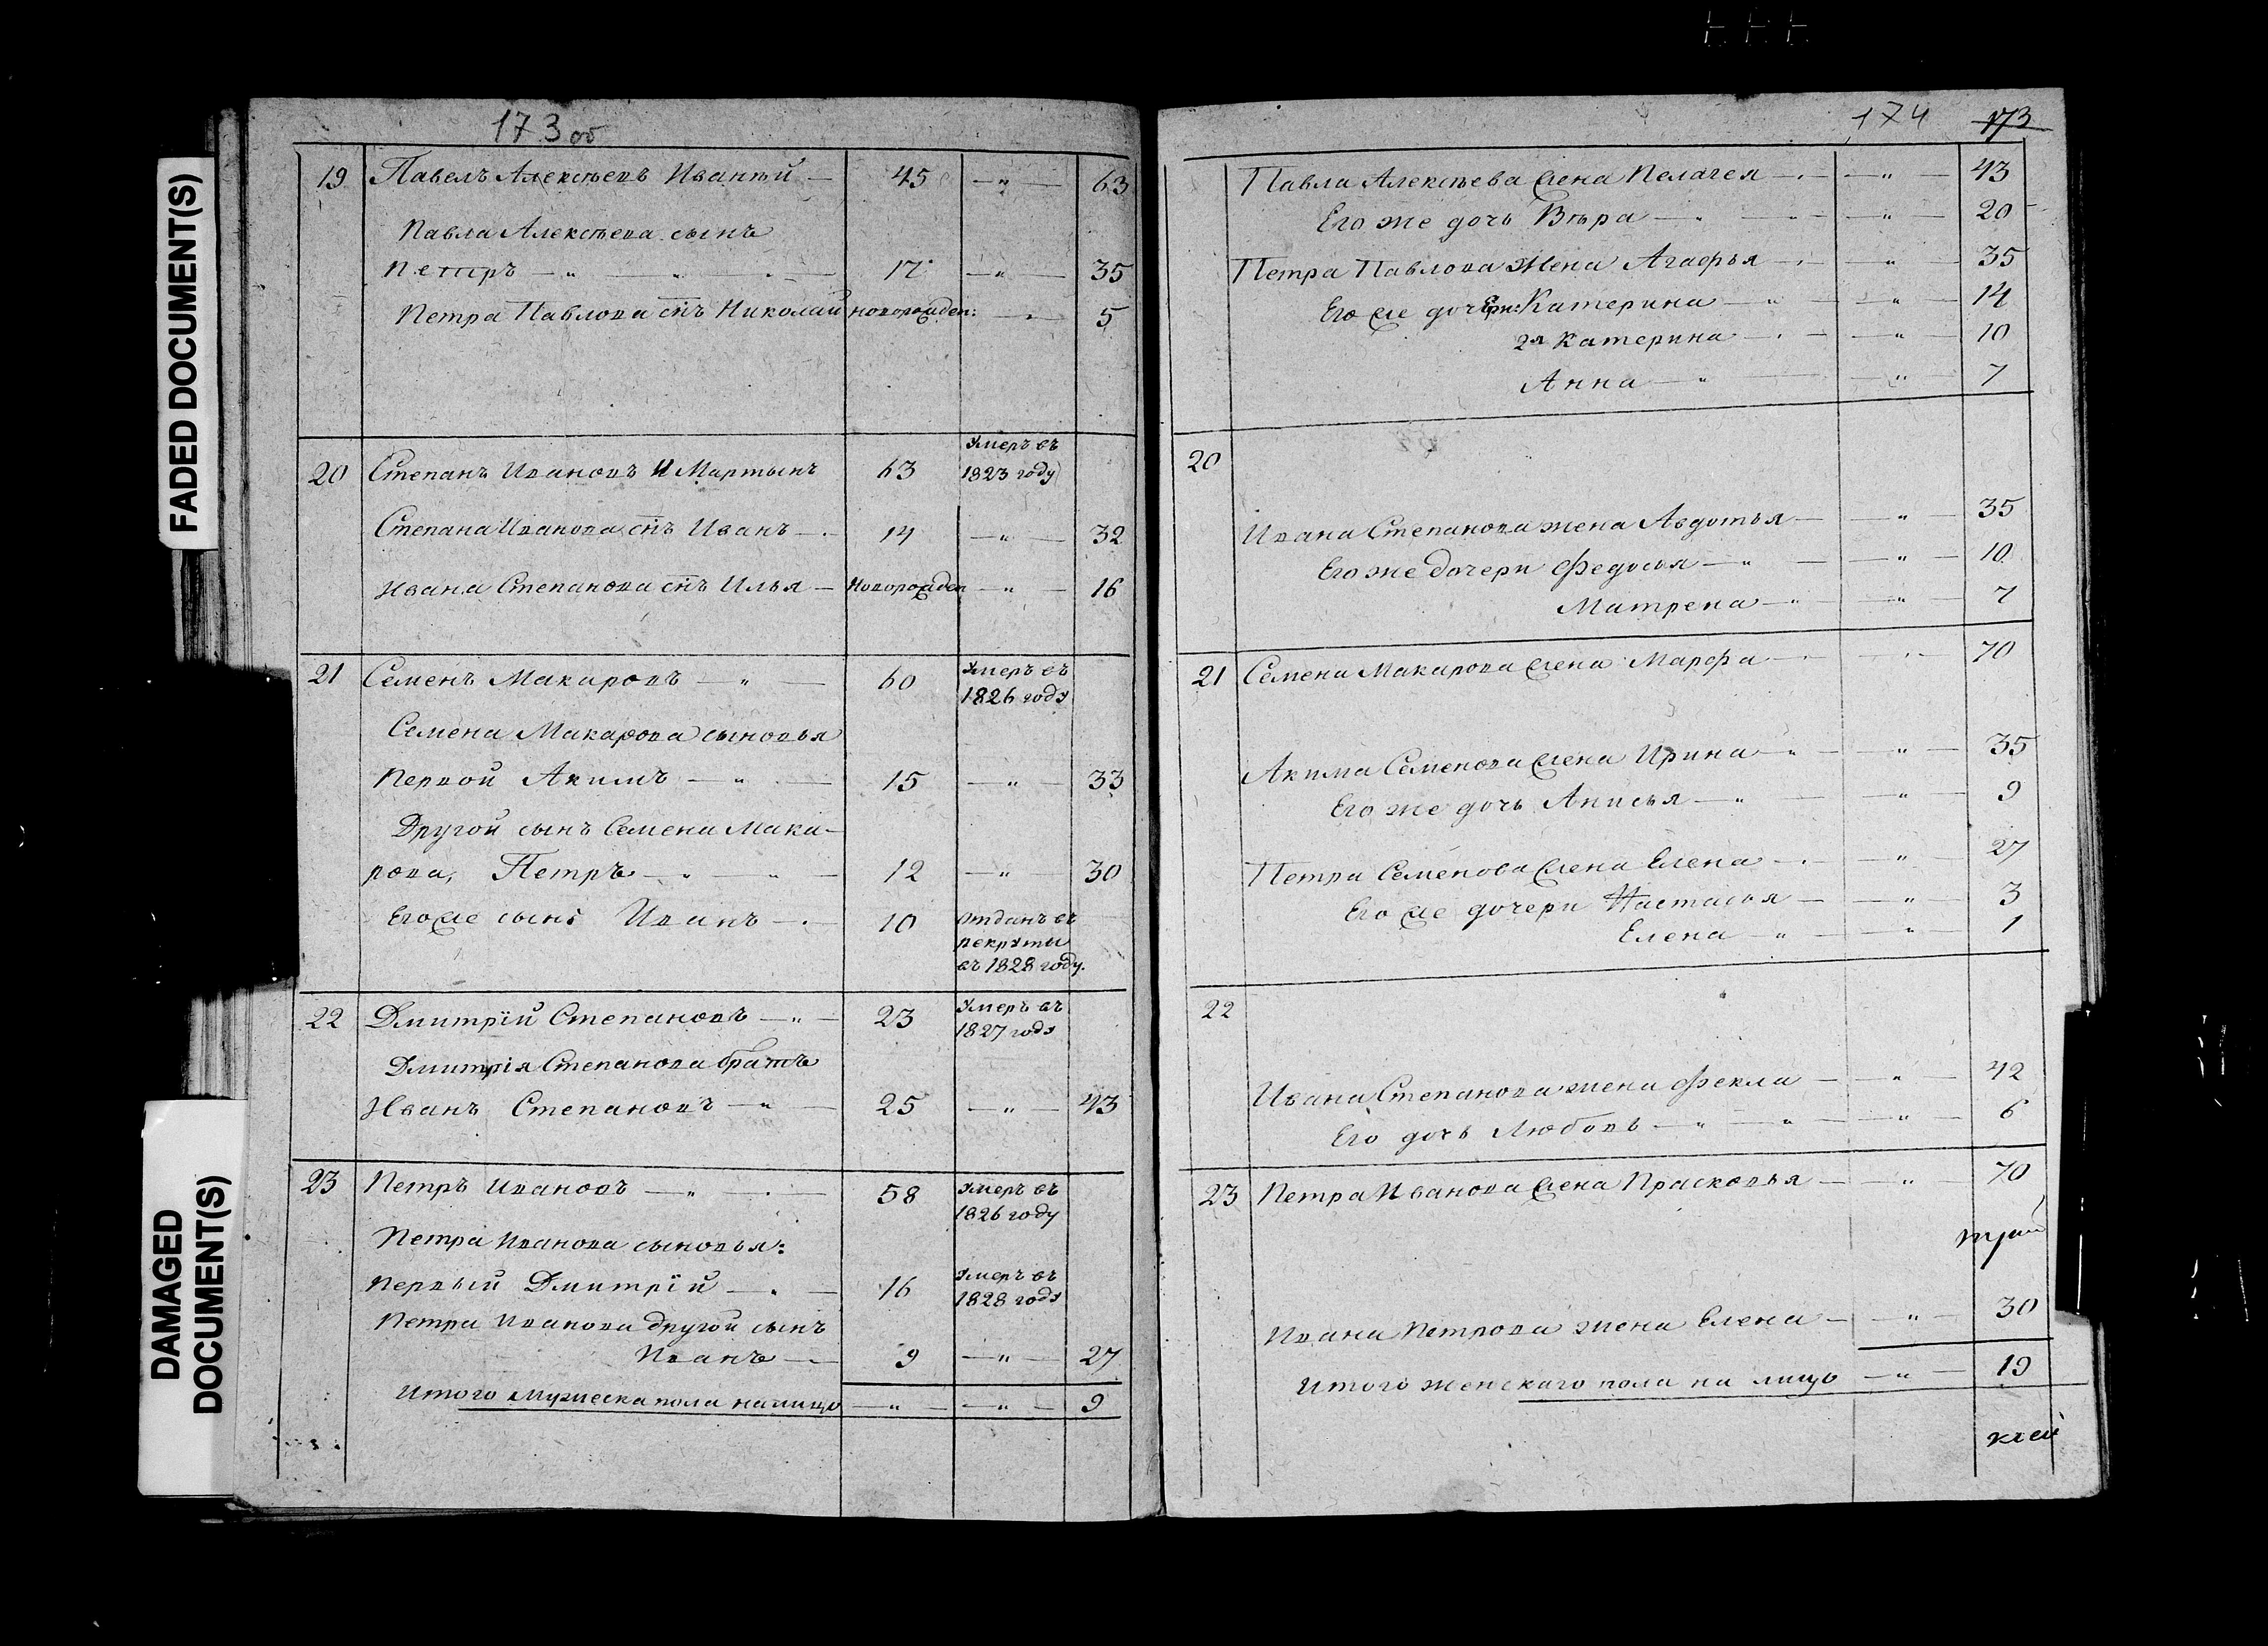 173 об
19 Павелъ Алексѣевъ Иваный — 45 — " — 63
Павла Алексѣева сынъ
Петръ — " — " — 17 — " — 35
Петра Павлова сн̃ъ Николай новорожден: — " — 5
20 Степанъ Ивановъ И Мартынъ 63 Умеръ въ
1823 году
Степана Иванова сн̃ъ Иванъ — 14 — " — 32
Ивана Степанова сн̃ъ Илья — Новорожден — " — 16
21 Семенъ Макаровъ — " — 60 Умеръ въ
1826 году
Семена Макарова сыновья
Первой Акимъ — " — 15 — " — 33
Другой сынъ Семена Мака-
рова, Петръ — " — " — 12 — " — 30
Егоже сынъ Иванъ — 10 отданъ въ
рекруты
въ 1828 году.
22 Дмитрїй Степановъ — " — 23 Умеръ въ
1827 году
Дмитрія Степанова братъ
Иванъ Степановъ — " — 25 — " — 43
23 Петръ Ивановъ — " — 58 Умеръ въ
1826 году
Петра Иванова сыновья:
Первый Дмитрїй — " — 16 Умеръ въ
1828 году
Петра Иванова другой сынъ
Иванъ — 9 — " — 27
Итого мужеска пола налицо — " — — " — 9
174 173
Павла Алексѣева жена Пелагея — " — 43
Его же дочь Вѣра — " — " — 20
Петра Павлова жена Агафья — " — 35
Его же дочери: Катерина — " — " — 14
2я Катерина — " — 10
Анна — " — " — 7
20
Ивана Степанова жена Авдотья — " — 35
Его же дочери Федосья — " — " — 10
Матрена — " — " — 7
21 Семена Макарова жена Марфа — " — 70
Акима Семенова жена Ирина — " — " — 35
Его же дочь Анисья — " — " — 9
Петра Семенова жена Елена — " — 27
Его же дочери Настасья — " — 3
Елена — " — " — 1
22
Ивана Степанова жена Фекла — " — 42
Его дочь Любовь — " — " — " — 6
23 Петра Иванова жена Прасковья — " — 70
Ивана Петрова жена Елена — " — 30
Итого женскаго пола на лицо — " — 19
FADED DOCUMENT(S)
DAMAGED
DOCUMENT(S)